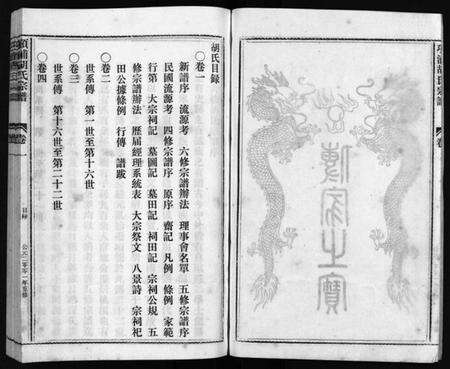 胡氏宗譜
卷
家之寶
胡氏目錄
○卷一
新譜序 六修宗譜辦法 理事會名單 五修宗譜序
民國流源考 四修宗譜序 原序 齋記 凡例 條例 家範
行第 大宗祠記 墓圖記 墓田記 祠田記 宗祠公規 五
修宗譜辦法 歷屆經理系統表 大宗祭文 八景詩 宗祠祀
田公據條例 行傳 譜跋
○卷二
世系傳 第一世至第十六世
○卷三
世系傳 第十六世至第二十二世
○卷四
胡氏宗譜
卷
目錄
公元二零零一年重修